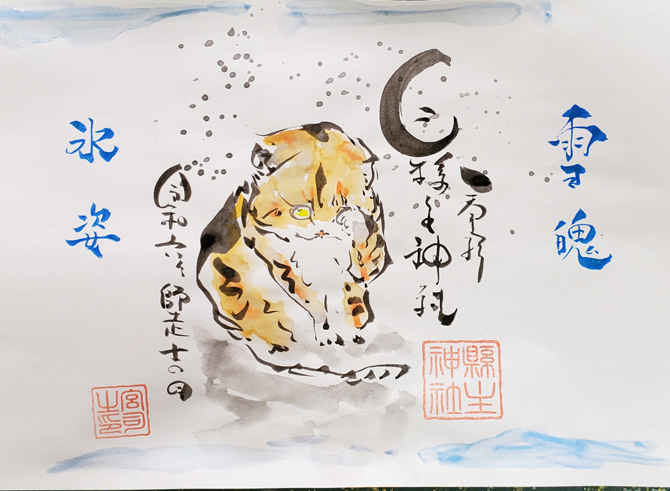 雪魄
縣主神社
縣主神社
令和六年師走
宮司之印
氷姿